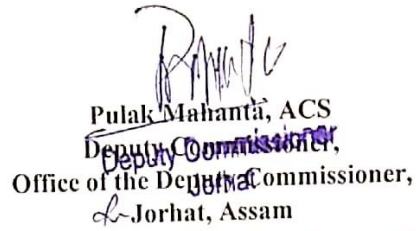 Pulak Mahanta, ACS
Deputy Commissioner,
Deputy Commissioner
Office of the Deputy Commissioner,
Jorhat
Jorhat, Assam